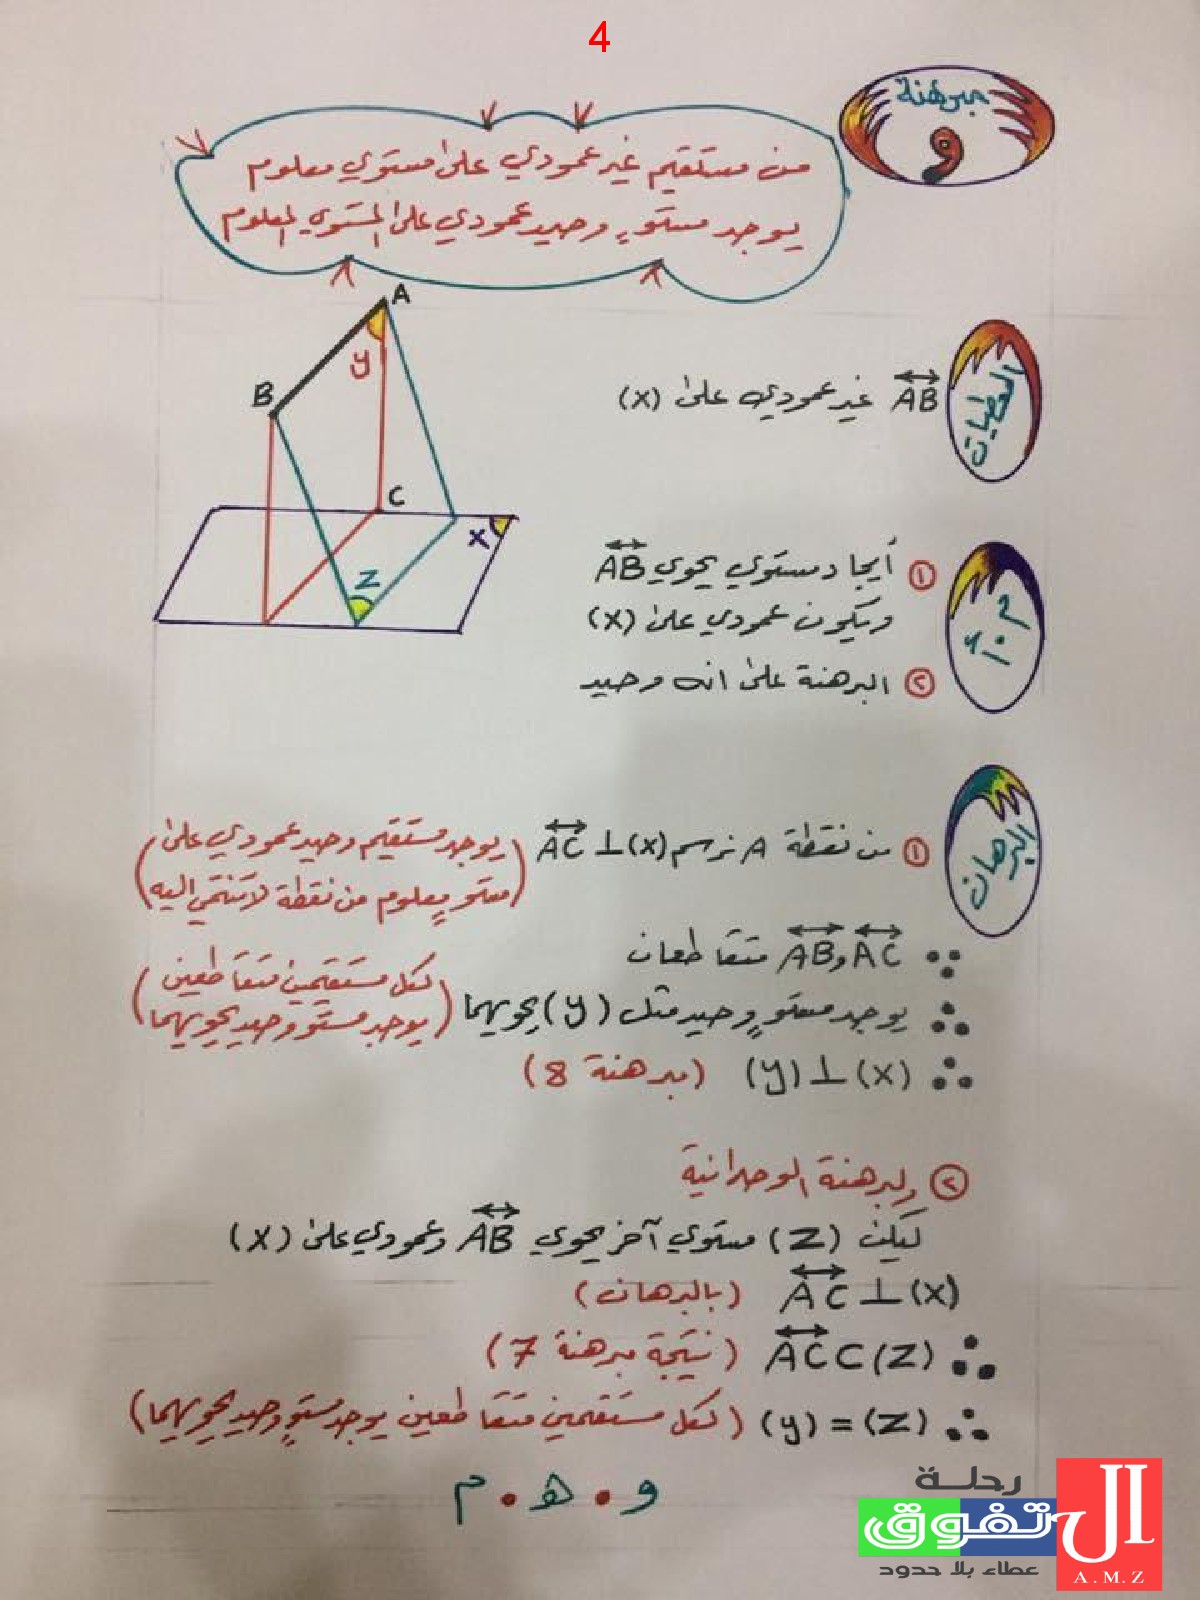 4
مبرهنة
9
من مستقيم غير عمودي على مستوي معلوم
يوجد مستوٍ وحيد عمودي على المستوي المعلوم
A
y
B
C
X
Z
المعطيات
AB غير عمودي على (X)
م.أ
① أيجاد مستوي يحوي AB
ويكون عمودي على (X)
② البرهنة على انه وحيد
البرهان
① من نقطة A نرسم AC ⊥ (X) (يوجد مستقيم وحيد عمودي على
مستوٍ معلوم من نقطة لاتنتمي اليه)
∵ AC و AB متقاطعان
∴ يوجد مستوٍ وحيد مثل (y) يحويهما (لكل مستقيمين متقاطعين
يوجد مستو وحيد يحويهما)
∴ (y) ⊥ (X) (مبرهنة 8)
② ولبرهنة الوحدانية
ليكن (Z) مستوي آخر يحوي AB وعمودي على (X)
AC ⊥ (X) (بالبرهان)
∴ AC ⊂ (Z) (نتيجة مبرهنة 7)
∴ (y) = (Z) (لكل مستقيمين متقاطعين يوجد مستوٍ وحيد يحويهما)
و . هـ . م
رحلة
التفوق
عطاء بلا حدود
A.M.Z